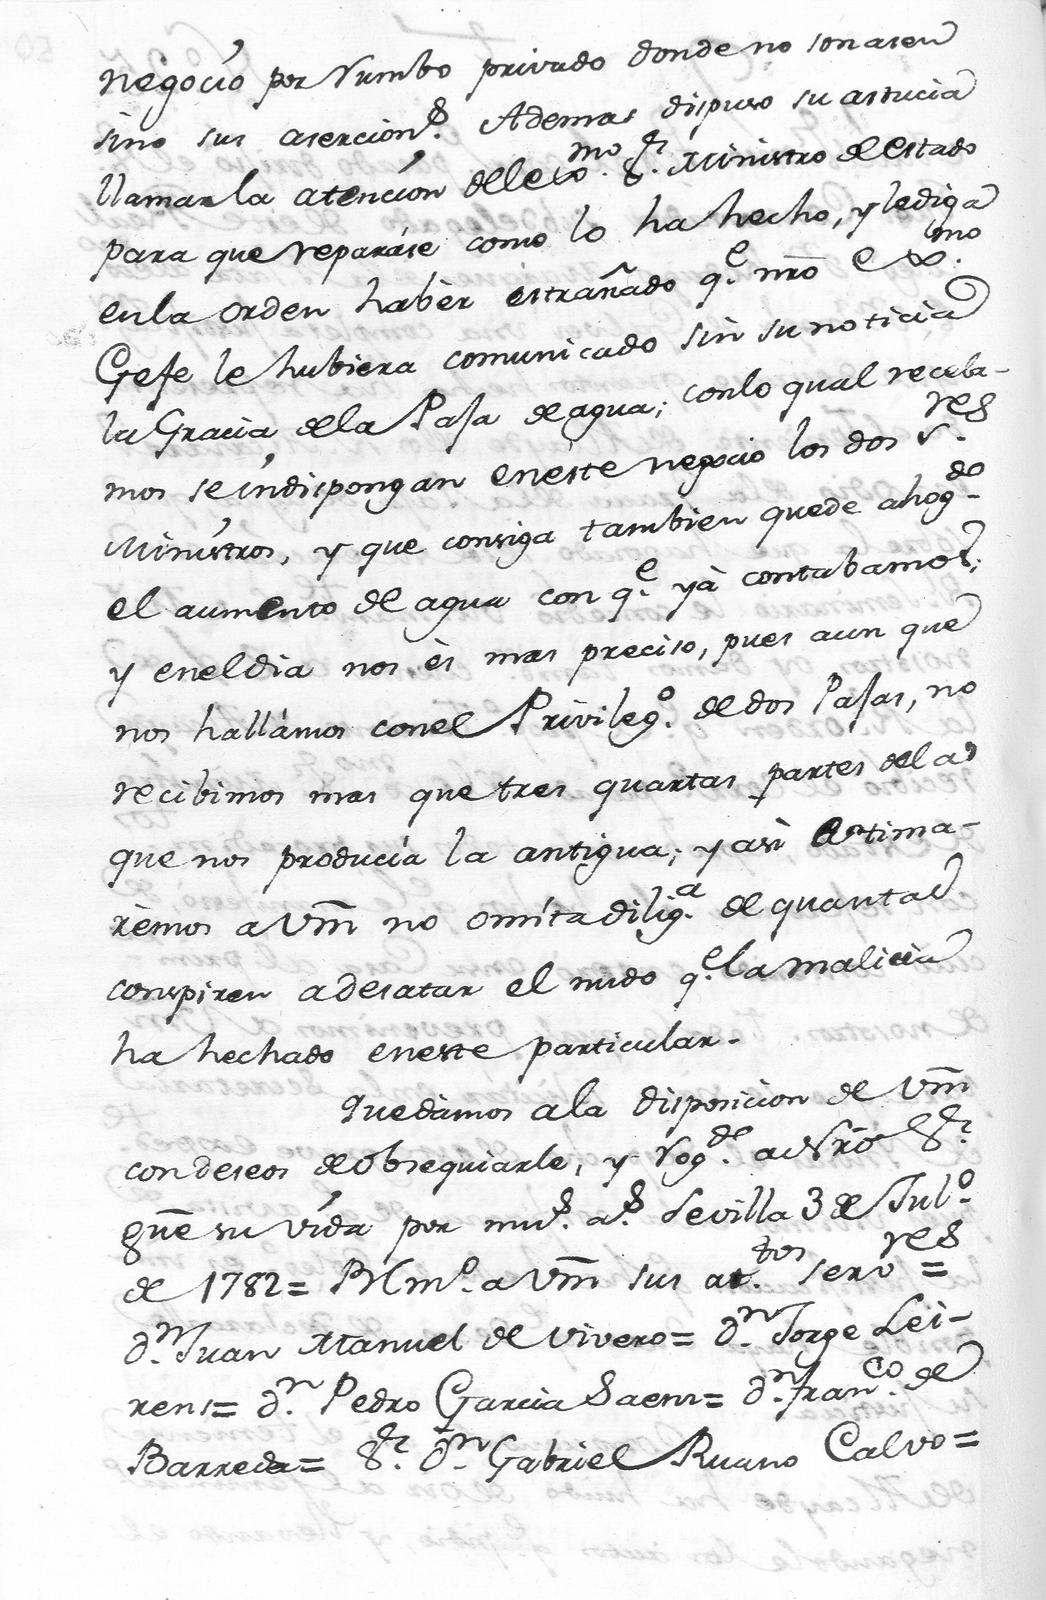 negocio por rumbo privado donde no sonasen
sino sus asercion.s Ademas dispuso su astucia
llamar la atención del Exmo. Sr. Ministro de estado
para que reparáse como lo ha hecho, y le diga
en la orden habèr estrañado q.e nrô Exmo.
Gefe le hubiera comunicado sin su noticia
la Gracia de la Paja de agua; con lo qual recela-
mos se indispongan en este negocio los dos S.res
Ministros, y que consiga tambien quede ahog.do
el aumento de agua con q.e yà contabamos;
y en el dia nos ès mas preciso, pues aun que
nos hallàmos con el Privileg.o de dos Pajas, no
recibimos mas que tres quartas partes de la
que nos producía la antigua; y asi estima-
rèmos a Vm̃ no omíta dilig.a de quantas
conspiren a desatar el nudo q.e la malicia
ha hechado en este particular.
Quedàmos a la disposicion de Vm̃
con deseos de obsequiarle, y rog.de a Nrô Sr.
güe su vída por mu.s a.s Sevilla 3 de Jul.o
de 1782= BLm.o a Vm̃ sus at.tos serv.res =
D.n Juan Manuel de Vivero= D.n Jorge Lei-
rens= D.n Pedro Garcia Saenz= D.n Fran.co de
Barreda= Sr. D.n Gabriel Ruano Calvo=